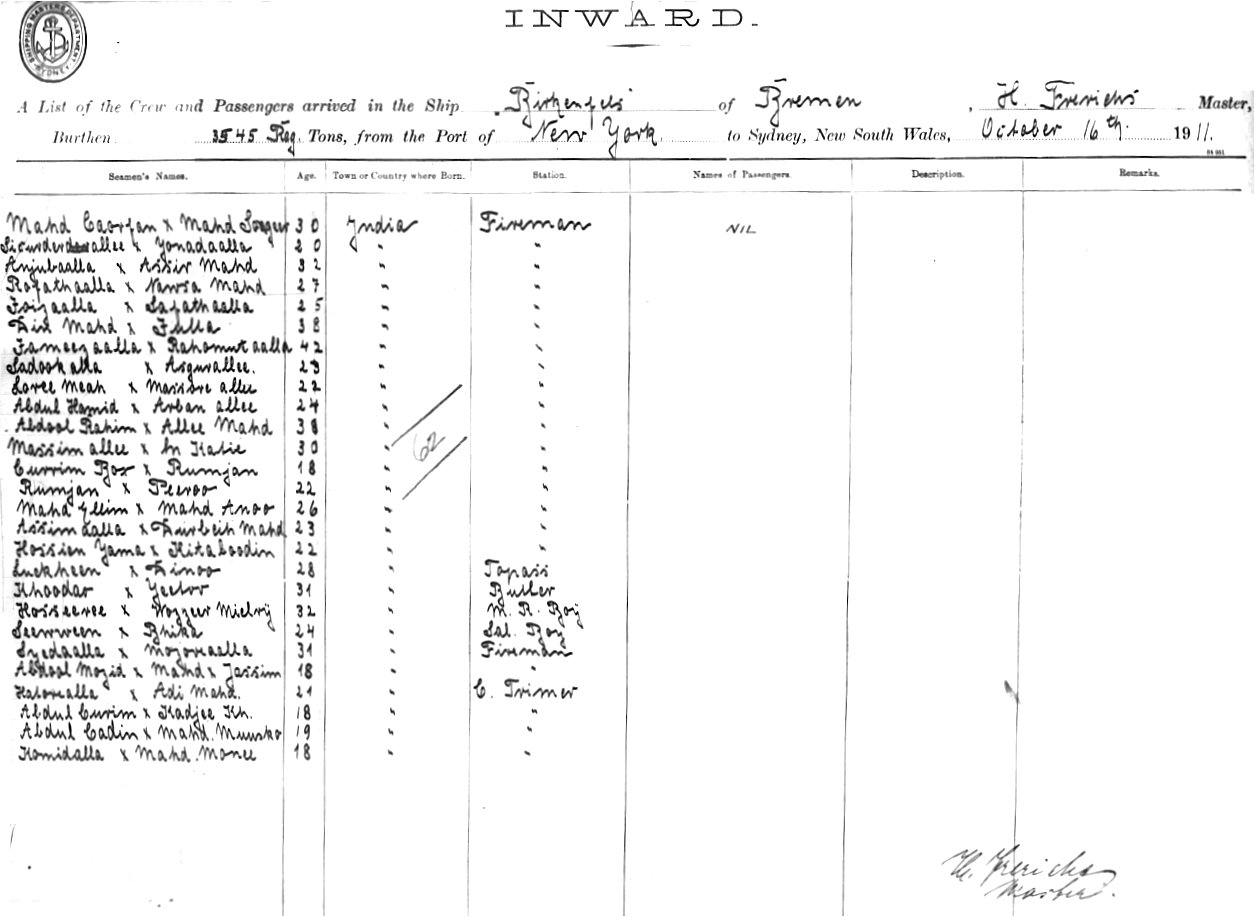 SHIPPING MASTERS DEPARTMENT SYDNEY
INWARD.
A List of the Crew and Passengers arrived in the Ship "Birkenfels" of Bremen, H. Frerichs Master,
Burthen 3545 Reg Tons, from the Port of New York to Sydney, New South Wales, October 16th. 1911.
Seamen's Names. Age. Town or Country where Born. Station. Names of Passengers. Description. Remarks.
Mahd Caorfan x Mahd 30 India Fireman NIL
x Yonadaalla 20 " "
Anjubaalla x Assir Mahd 32 " "
Rofathaalla x Nawsa Mahd 27 " "
Foizaalla x Safathaalla 25 " "
Din Mahd x Fulla 38 " "
Fameezaalla x Rahomutaalla 42 " "
Sadookalla x Asguvallee. 23 " "
Loree Meah x Massore allee 22 " "
Abdul Hamid x Arban allee 24 " "
Abdool Rahim x Allee Mahd 38 " "
Massim allee x Katie 30 " "
Currim Box x Rumjan 18 " "
62
Rumjan x Peeroo 22 " "
Mahd Yllim x Mahd Anoo 26 " "
Assimaalla x Mahd 23 " "
Hossien Yama x Kitaboodin 22 " "
Luckheen x Dinoo 28 " Topass
Khoodar x Yector 31 " Butler
Hosseeree x Wozzeer 32 " M. R. Boy
x Bhika 24 " Sal. Boy
Syedaalla x Mozoreaalla 31 " Fireman
Abdool Mozid x Mahd x Jassim 18 " "
Hatorealla x Adi Mahd. 21 " C. Trimer
Abdul Curim x Kadjee Kh. 18 " "
Abdul Cadin x Mahd. Muusko 19 " "
Komidalla x Mahd. Monee 18 " "
H. Frerichs
Master.